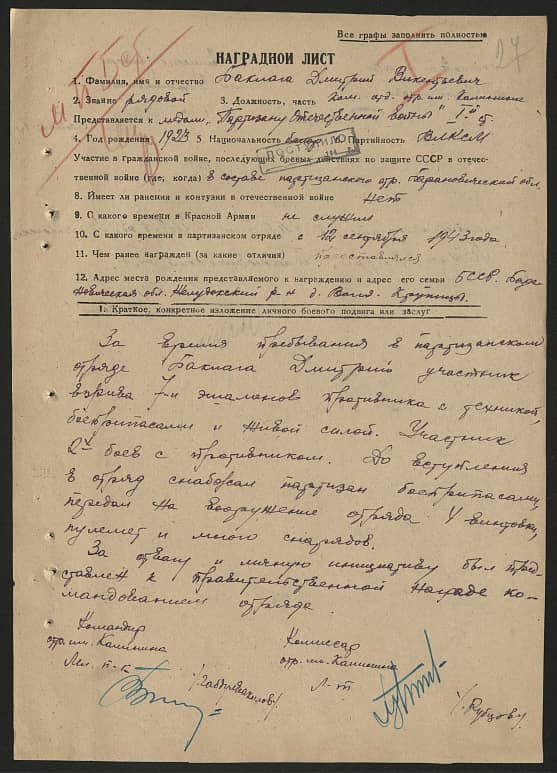 Все графы заполнять полностью
27
НАГРАДНОЙ ЛИСТ
1. Фамилия, имя и отчество Баклага Дмитрий Викентьевич
2. Звание рядовой 3. Должность, часть ком. отд. отр. им. Калинина
Представляется к медали „Партизану Отечественной войны" I-й ст.
4. Год рождения 1923 5 Национальность 6. Партийность ВЛКСМ
ПОСТУПИЛО
Участие в гражданской войне, последующих боевых действиях по защите СССР в отечест-
венной войне (где, когда) в составе партизанского отр. Барановической обл.
8. Имеет ли ранения и контузии в отечественной войне нет
9. С какого времени в Красной Армии не служил
10. С какого времени в партизанском отряде с 12 сентября 1943 года
11. Чем ранее награжден (за какие отличия)
12. Адрес места рождения представляемого к награждению и адрес его семьи БССР. Бара
новическая обл. Желудокский р-н д. Воля
1. Краткое, конкретное изложение личного боевого подвига или заслуг
За время пребывания в партизанском
отряде Баклага Дмитрий участник
взрыва 7-и эшелонов противника с техникой,
боеприпасами и живой силой. Участник
2х боев с противником. До вступления
в отряд снабжал партизан боеприпасами,
передал на вооружение отряда 4 винтовки,
пулемет и много снарядов.
За отвагу и личную инициативу был пред-
ставлен к правительственной награде ко-
мандованием отряда.
Командир
отр. им. Калинина
Комиссар
отр. им. Калинина
Л-т
/Рубцов/